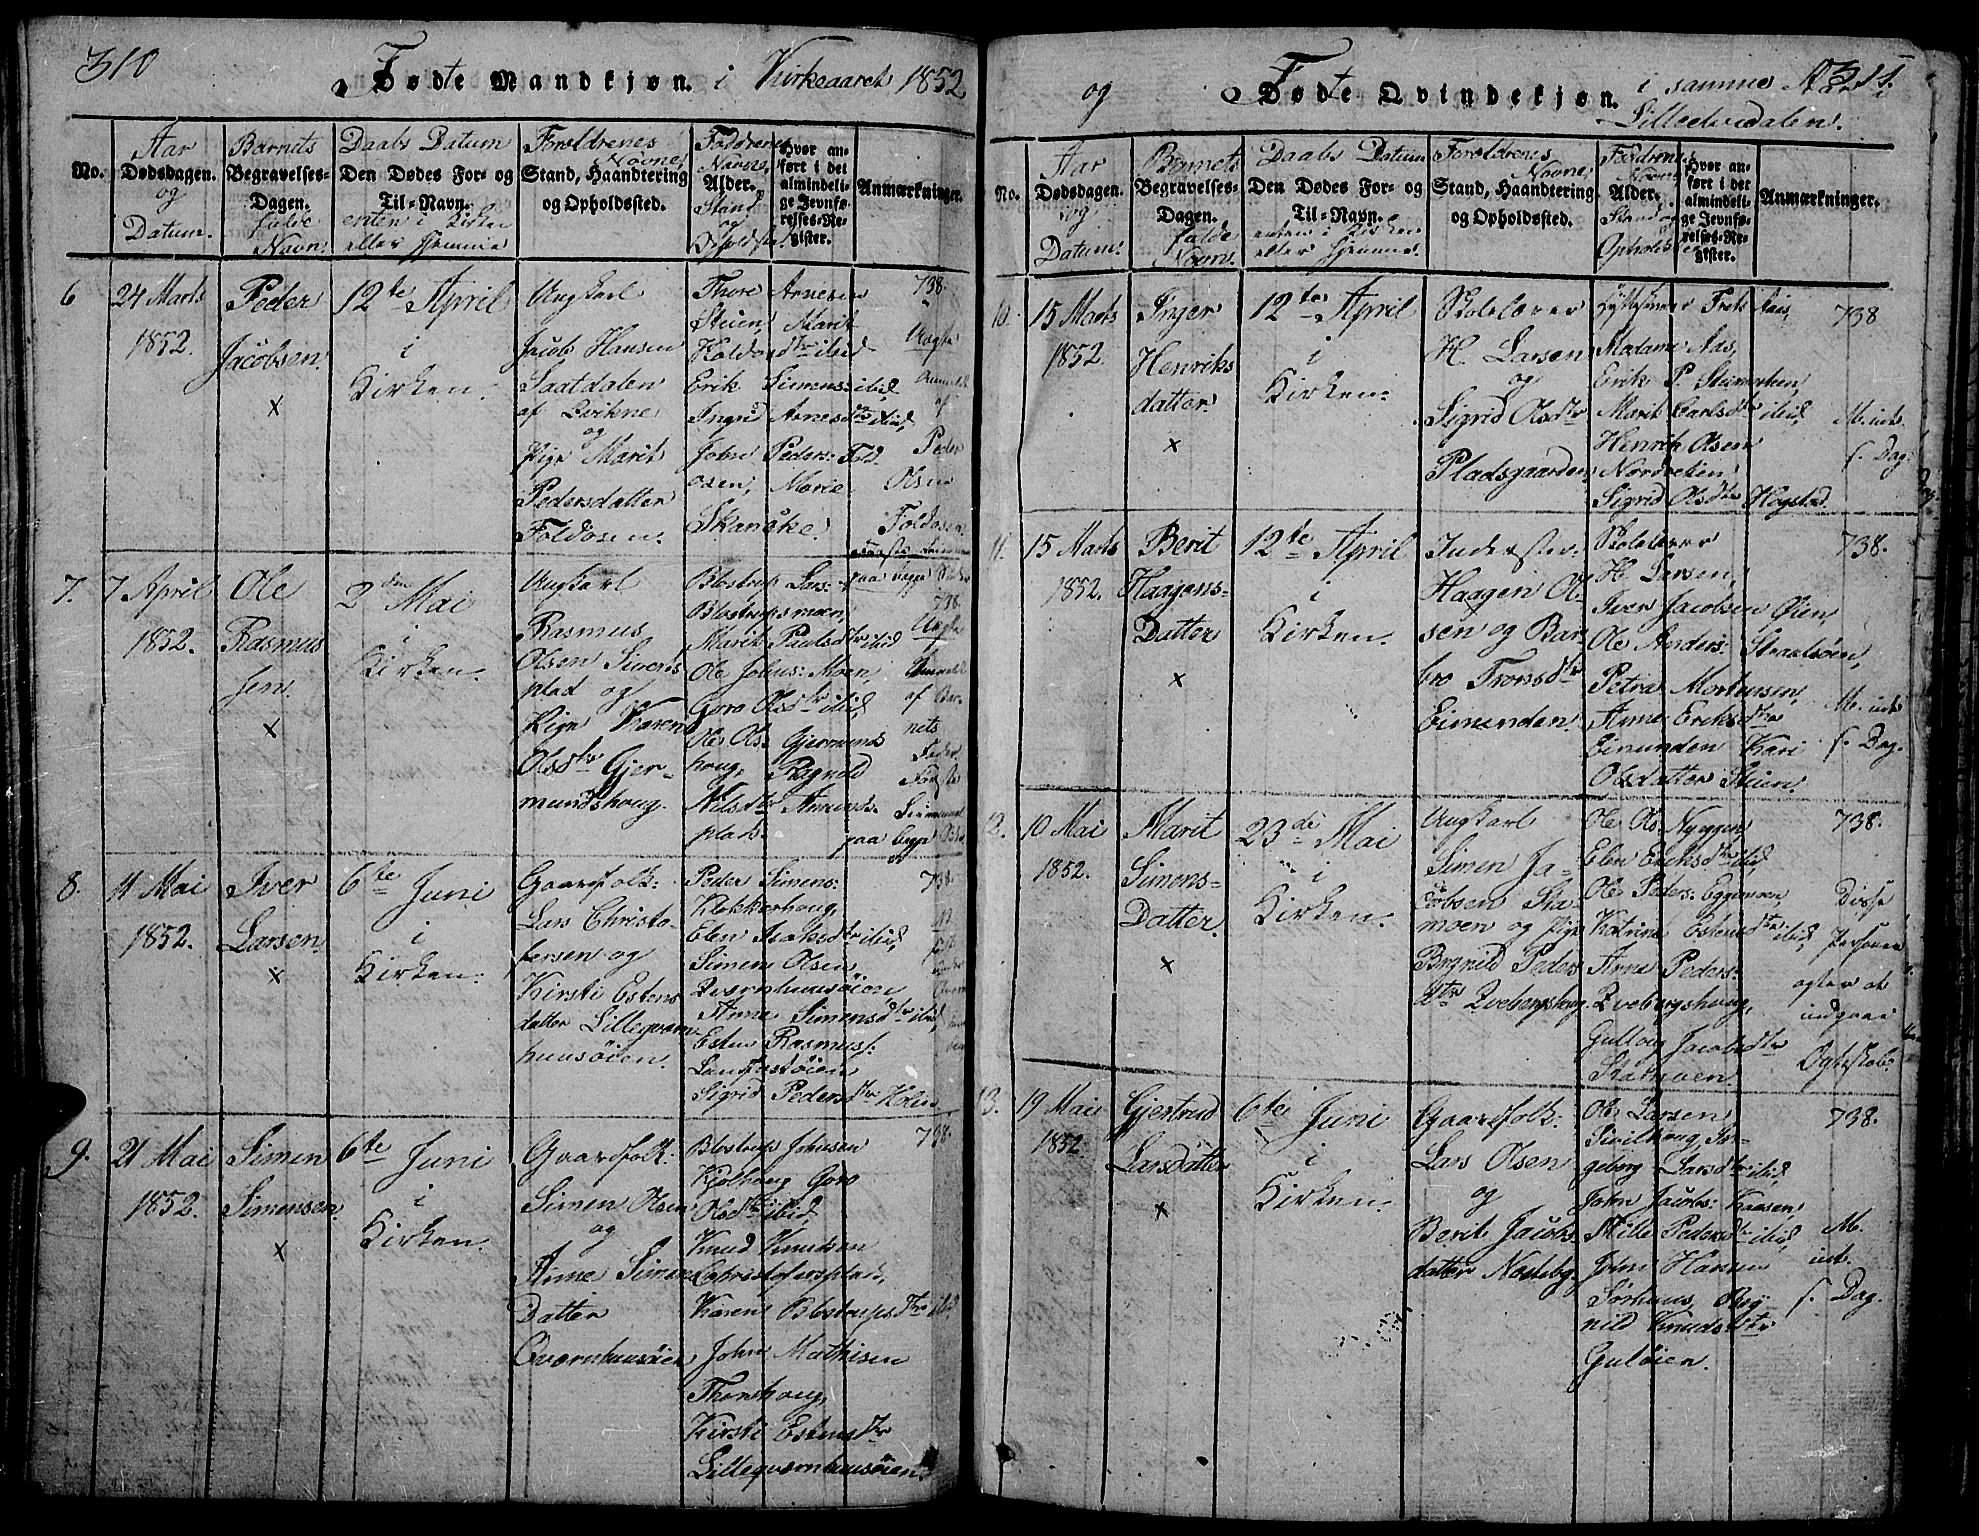 310
Fødte Mandkjøn. i Kirkeaaret 1852
No.
Aar
Dødsdagen.
og
Datum.
Barnets
Begravelses-
Dagen.
fulde
Navn.
Daabs Datum
Den Dødes For- og
Til-Navn.
enten i Kirken
eller Hjemme
Forældrenes
Navne,
Stand, Haandtering
og Opholdssted.
Faddrenes
Navne,
Alder.
Stand
og
Opholdsst.
Hvor an-
ført i det
almindeli-
ge Jevnfø-
relses-Re-
gister.
Anmærkninger.
6
24 Marts
1852.
Peder
Jacobsen.
×
12te April
i
Kirken.
Ungkarl
Jacob Hansen
Saatdalen
af Qvikne
og
Pige Marit
Pedersdatter
Foldosen.
Thore Arnesen
Stuen, Marit
Haldordtr ibid,
Erik Simens: ibid,
Ingrid Arnesdtr ibid,
John Peders: Fold-
osen, Marie
Skancke.
738
Uægte
Anmeldt
af
Peder
Olsen
Foldosen
7.
7 April
1852.
Ole
Rasmus
sen.
×
2den Mai
i
Kirken.
Ungkarl
Rasmus
Olsen Siverts
plad og
Pige Karen
Olsdtr Gjer-
mundshoug.
Blostrup Lars:
Blostrupsmoen,
Marit Paulsdtr ibid
Ole Johns: Moen,
Goro Olsdtr ibid,
Ole Ols: Gjermunds
houg, Ragnild
Nilsdtr Amunds-
plads.
738.
Uægte
Anmeldt
af Bar-
nets
Fader
Første
paa begge Sider
8.
11 Mai
1852.
Iver
Larsen
×
6te Juni
i
Kirken.
Gaardfolk:
Lars Christo-
fersen og
Kirsti Estens
datter Lilleqværn
huusøien.
Peder Simens:
Klokkerhoug,
Elen Isaksdtr ibid,
Simen Olsen
Qværnhuusøien
Anne Simensdtr ibid,
Esten Rasmus:
Langsætøien
Sigrid Pedersdtr Holen
738.
9.
21 Mai
1852.
Simen
Simensen.
×
6te Juni
i
Kirken.
Gaardfolk:
Simen Olsen
og
Anne Simens
Datter
Qværnhuusøien
Blostrup Johnsen
Kjølhoug Goro
Olsdtr ibid,
Knud Knudsen
Christofersplads,
Karen Blostrupsdtr ibid
John Mathisen
Thomshoug,
Kirsti Estensdtr
Lilleqværnhuusøien.
738.
og
Fødte Qvindekjøn.
i samme A
311.
Lilleelvedalen.
No.
Aar
Dødsdagen.
og
Datum.
Barnets
Begravelses-
Dagen.
fulde
Navn.
Daabs Datum
Den Dødes For- og
Til-Navn.
enten i Kirken
eller Hjemme.
Forældrenes
Navne,
Stand, Haandtering
og Opholdssted.
Faddrenes
Navne,
Alder.
Stand og
Opholds
Hvor an-
ført i det
almindeli-
ge Jevnfø-
relses-Re-
gister.
Anmærkninger.
10.
15 Marts
1852.
Inger
Henriks
datter.
×
12te April
i
Kirken.
Skolelærer
H. Larsen
og
Sigrid Olsdtr
Pladsgaarden
Fredk Aas,
Madame Aas,
Erik P. Steimoeien,
Marit Carlsdtr ibid,
Henrik Olsen
Nordvetien
Sigrid Olsdtr Høgstad.
738
M. ud.
s. Dag.
11.
15 Marts
1852.
Berit
Haagens-
Datter
×
12te April
i
Kirken.
Inderster:
Haagen Ol-
sen og Bar-
bro Tronsdtr
Eimunden.
Skolelærer
H. Larsen,
Iver Jacobsen Øien,
Ole Anders: Straaløien,
Petra Mortensen,
Anne Eriksdtr
Einunden Kari
Olsdatter Stuen
738.
M. ud.
s. Dag.
12.
10 Mai
1852.
Marit
Simens-
Datter.
×
23de Mai
i
Kirken.
Ungkarl
Simen Ja-
cobsen Sta-
moen og Pige
Brynild Peders
dtr Qvebergshoug
Ole Ols: Nyggen
Elen Eriksdtr ibid,
Ole Peders: Eggmoen
Katrine Estensdtr ibid,
Arne Peders:
Qvebergshoug,
Gulloug Jacobsdtr
Stamoen.
738.
Disse
Personer
agter at
indgaae
Ægteskab:
13.
19 Mai
1852
Gjertrud
Larsdatter
×
6te Juni
i
Kirken.
Gaardfolk:
Lars Olsen
og
Berit Jacobs-
datter Nordebg.
Ole Larsen
Sivilhoug, In-
geborg Larsdtr ibid,
John Jacobs: Kaasen
Mille Pedersdtr ibid,
John Hansen
Sørhuus, Bry-
nild Knudsdtr
Guløien.
738.
M.
ud.
s. Dag.